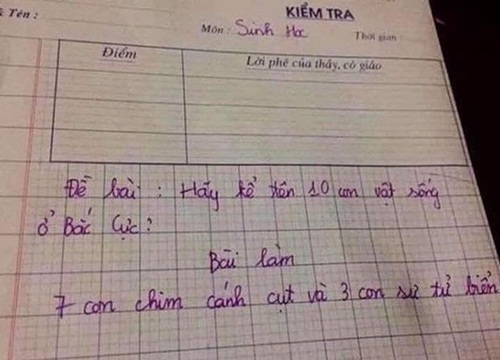 Tên :
KIỂM TRA
Môn : Sinh Học
Thời gian
Điểm
Lời phê của thầy, cô giáo
Đề bài : Hãy kể tên 10 con vật sống
ở Bắc Cực?
Bài làm
7 con chim cánh cụt và 3 con sư tử biển